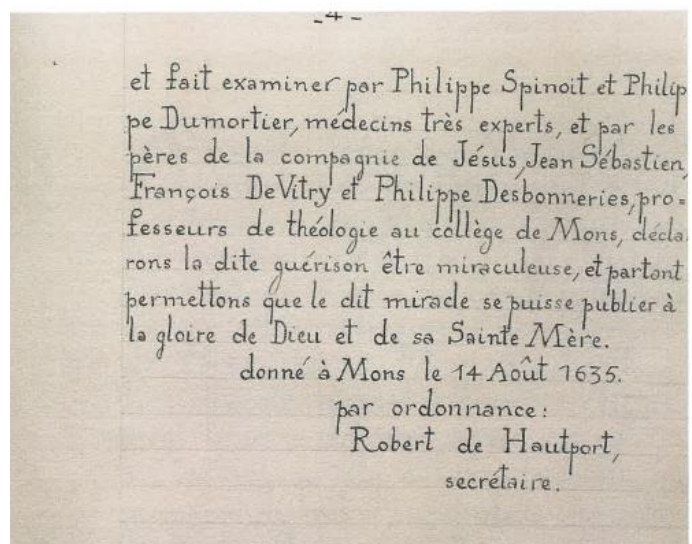 -4-
et fait examiner par Philippe Spinoit et Philip
pe Dumortier, médecins très experts, et par les
pères de la compagnie de Jésus, Jean Sébastien,
François DeVitry et Philippe Desbonneries, pro=
fesseurs de théologie au collège de Mons, décla.
rons la dite guérison être miraculeuse, et partant
permettons que le dit miracle se puisse publier à
la gloire de Dieu et de sa Sainte Mère.
donné à Mons le 14 Août 1635.
par ordonnance:
Robert de Hautport,
secrétaire.